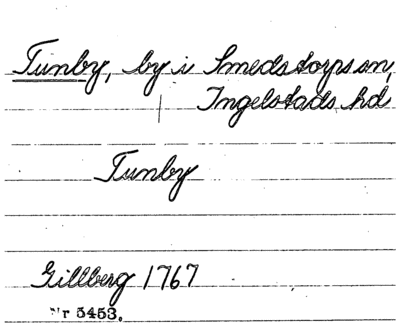 Tunby, by i Smedstorps sn,
Ingelstads hd
Tunby
Gillberg 1767
Nr 5453.